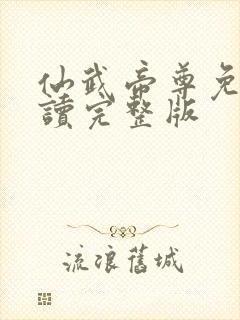 仙武帝尊免
讀完整版
流浪舊城